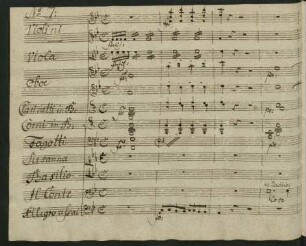 No 7.
Violini
Viola
Oboe
Clarinetti in B.
Corni in B.
Fagotti
Susanna
Basilio
Il Conte
Allegro assai